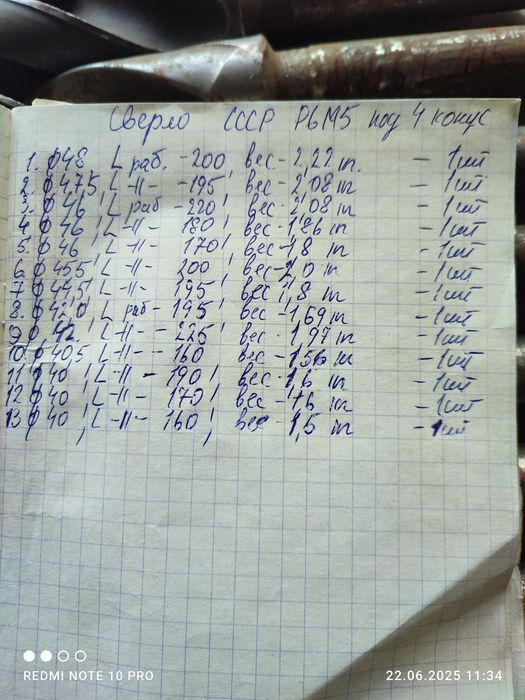 Сверло СССР Р6М5 под 4 конус
1. ф48 L раб. -200 вес-2,22 кг. - 1шт
2. ф47,5 L -11- -195 вес-2,08 кг - 1шт
3. ф46 L раб -220 вес-2,08 кг - 1шт
4. ф46 L -11- 180 вес-1,86 кг - 1шт
5. ф46 L -11- 170 вес-1,8 кг - 1шт
6. ф45,5 L -11- 200 вес-2,0 кг - 1шт
7 ф44,5 L -11- 195 вес 1,8 кг - 1шт
8. ф42,0 L раб -195 вес-1,69 кг - 1шт
9 ф 42. L -11- -225 вес-1,97 кг - 1шт
10. ф40,5 L -11- -160 вес-1,56 кг - 1шт
11 ф40 L -11- -190 вес-1,6 кг - 1шт
12 ф40 L -11- -170 вес-1,6 кг - 1шт
13 ф40 L -11- 160, вес-1,5 кг - 1шт
REDMI NOTE 10 PRO
22.06.2025 11:34